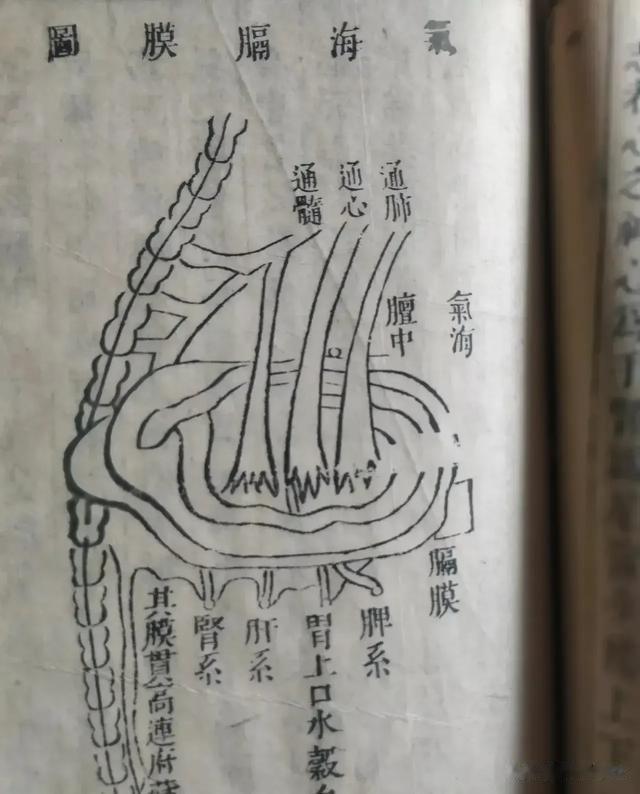 氣海膈膜圖
通肺
通心
通髓
氣海
膻中
膈膜
脾系
胃上口水穀
肝系
腎系
其膜貫膏連府